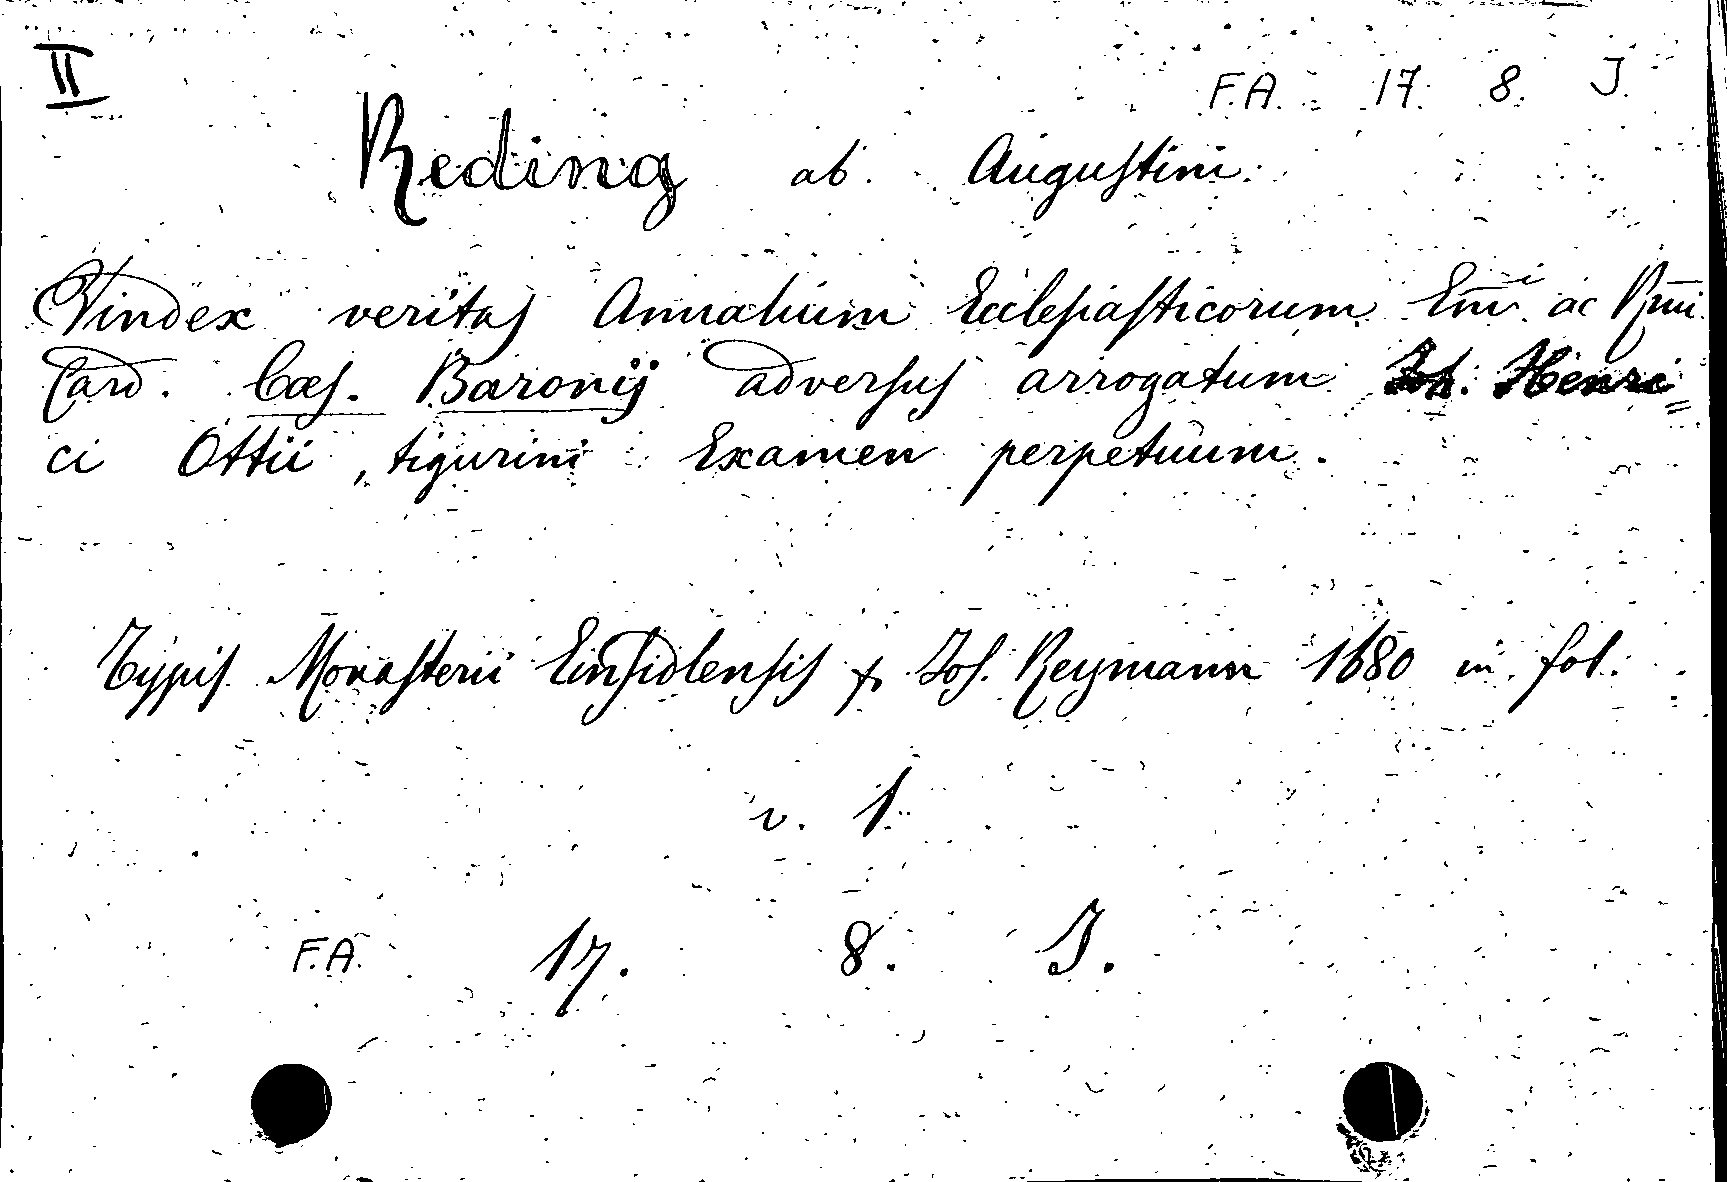 II
F.A. 17. 8. J.
Reding ab Augustini.
Vindex veritas Annalium Ecclesiasticorum Em̄i. ac Rm̄i.
Card. Cæs. Baronij adversus arrogatum Joh. Henri=
ci Ottii, tigurini Examen perpetuum.
Typis Monasterii Einsidlensis p. Jos. Reymann 1680 in fol.
v. 1.
F.A. 17. 8. J.